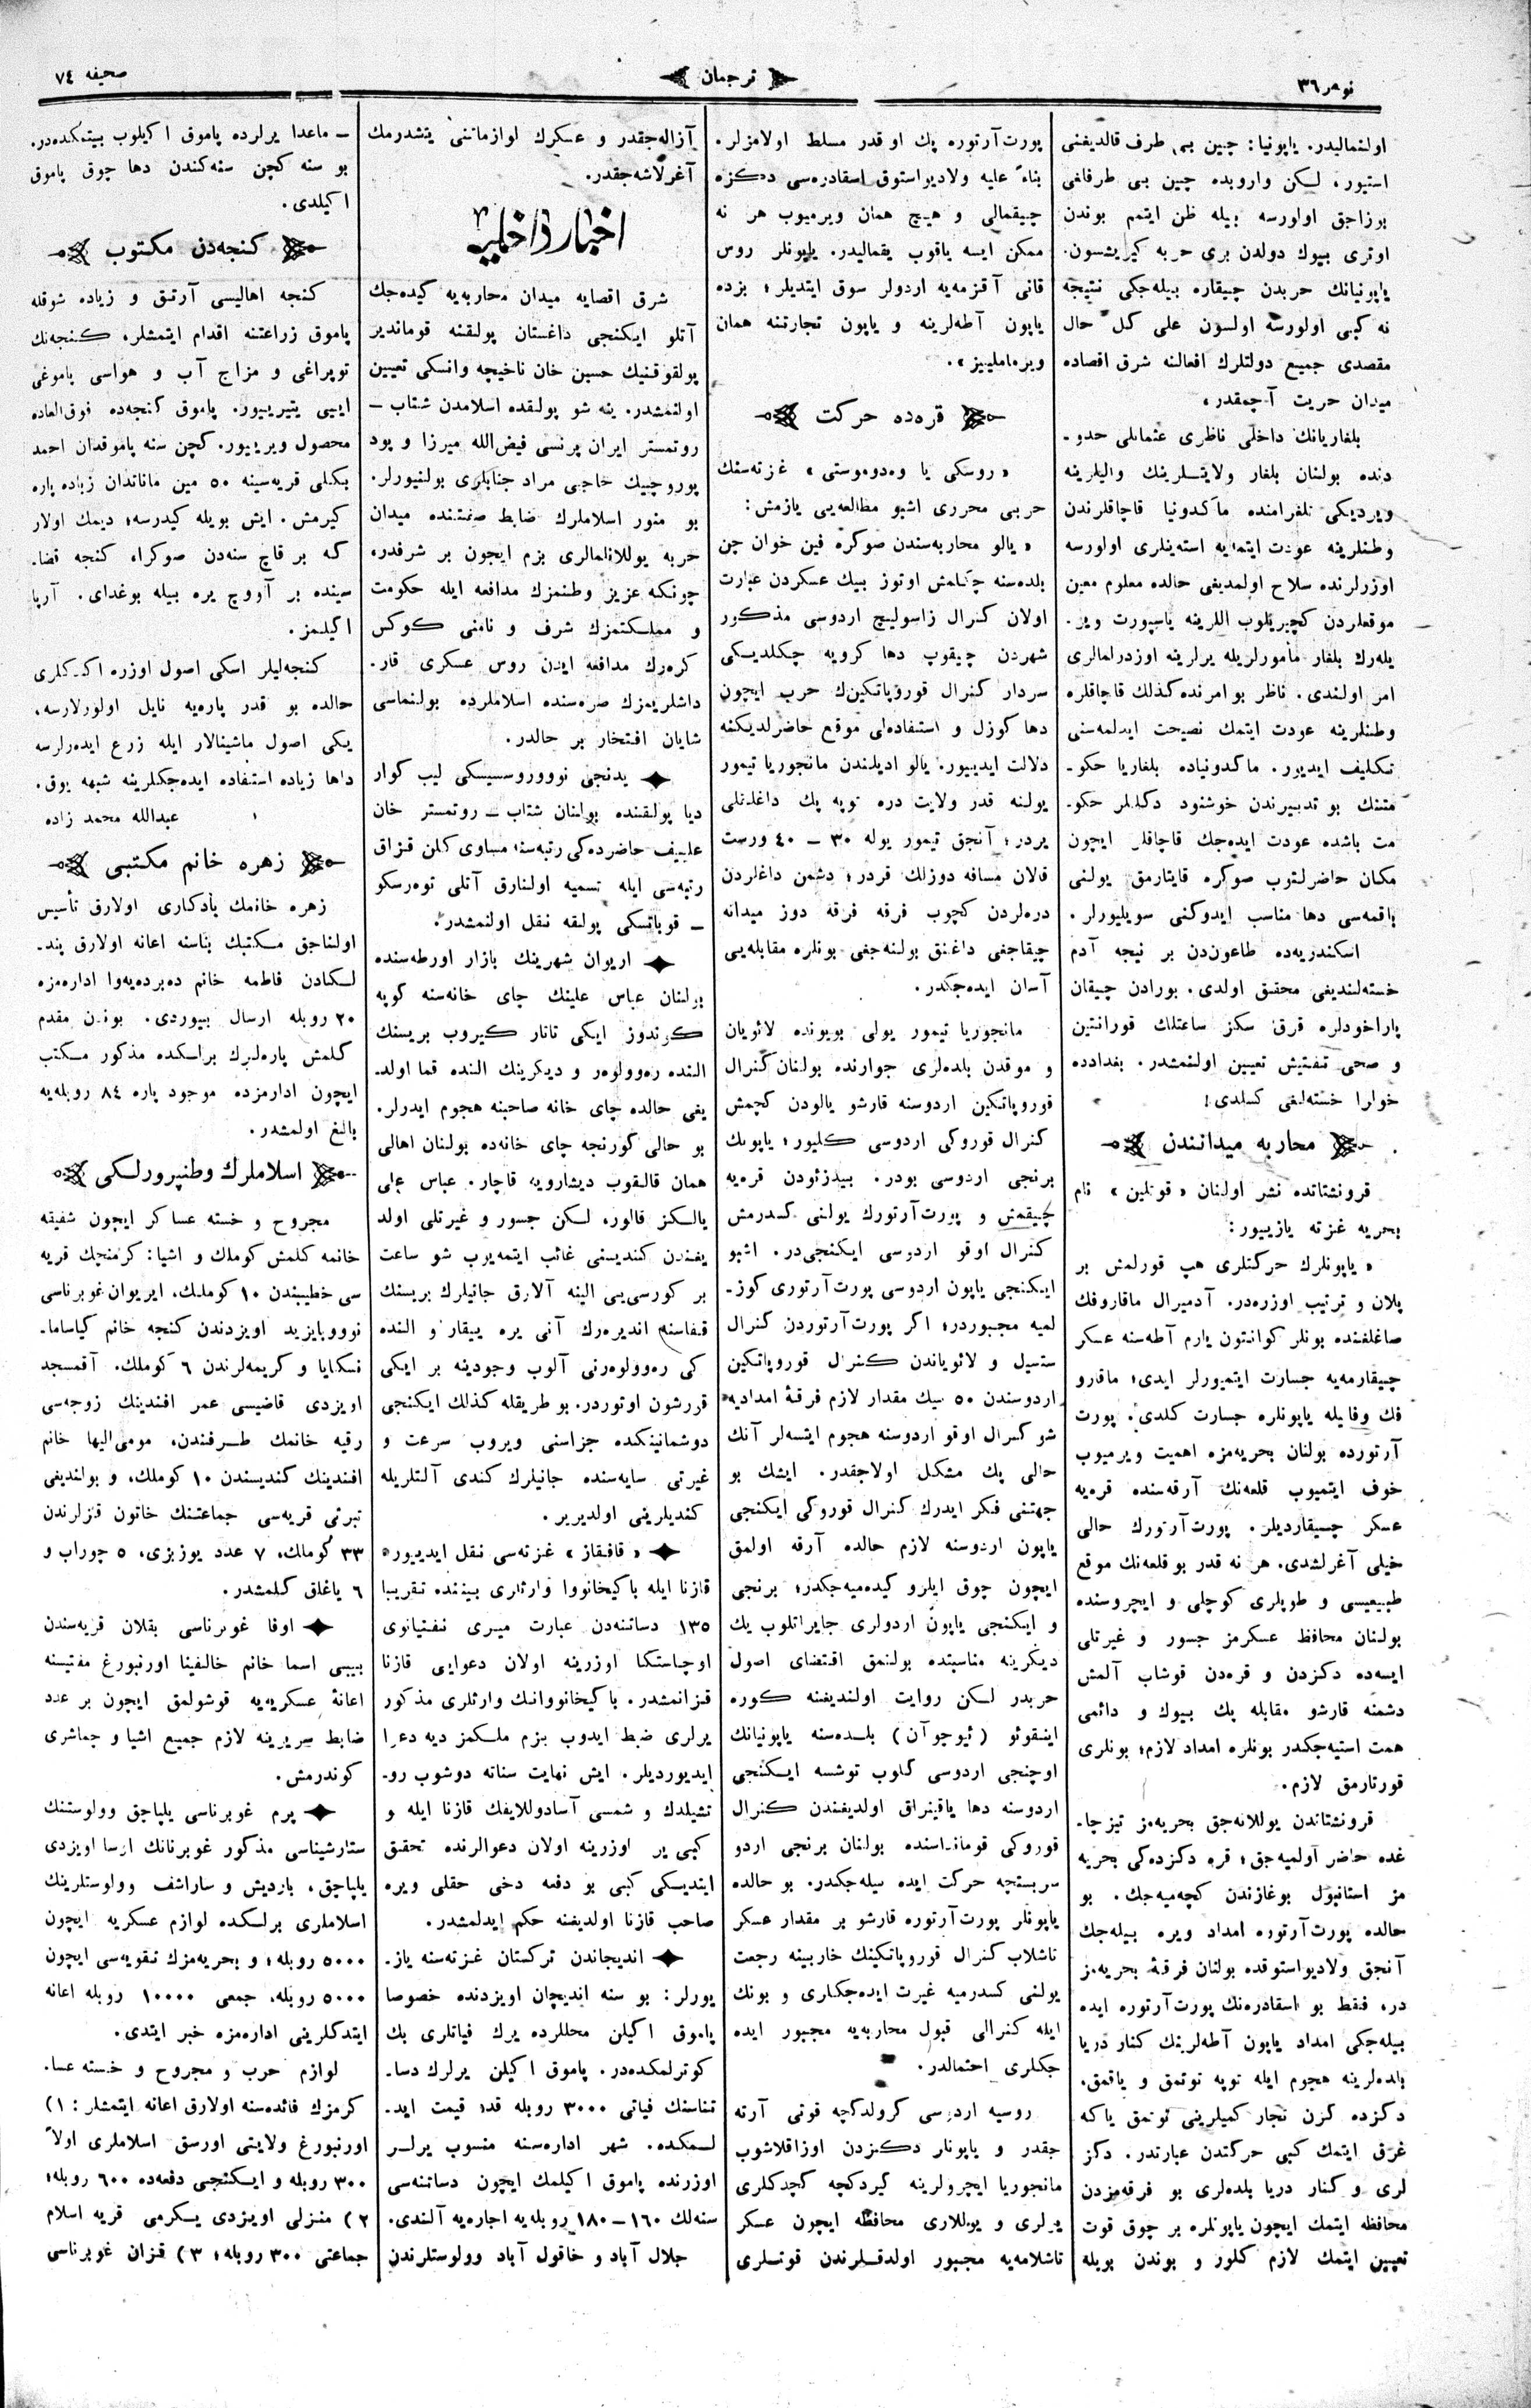 نومر ٣٦
ترجمان
صحیفه ٧٤
اولنمالیدر. یاپونیا: چین بی طرف قالدیغنی
استیور، لكن واروبده چین بی طرفلغی
بوزاجق اولورسه بیله ظن ایتمم بوندن
اوتری بیوك دولدن بری حربه كیریشسون.
یاپونیانك حربدن چیقاره بیله‌جكی نتیجه
نه كبی اولورسه اولسون علی كل حال
مقصدی جمیع دولتلرك افعالنه شرق اقصاده
میدان حریت آچمقدر،
بلغاریانك داخلی ناظری عثمانلی حدو-
دنده بولنان بلغار ولایتلرینك والیلرینه
ویردیكی تلغرامنده ماكدونیا قاچاقلرندن
وطنلرینه عودت ایتمایه استه‌ینلری اولورسه
اوزرلرنده سلاح اولمدیغی حالده معلوم معین
موقعلردن كچیریلوب اللرینه پاسپورت ویر-
یله‌رك بلغار مأمورلریله یرلرینه اوزدرلمالری
امر اولندی. ناظر بو امرنده كذلك قاچاقلره
وطنلرینه عودت ایتمك نصیحت ایدلمه‌سنی
تكلیف ایدیور. ماكدونیاده بلغاریا حكو-
متنك بو تدبیرندن خوشنود دكللر حكو-
مت باشده عودت ایده‌جك قاچاقلر ایچون
مكان حاضرلنوب صوكره قایتارمق یولنی
باقمه‌سی دها مناسب ایدوكنی سویلیورلر.
اسكندریه‌ده طاعون‌دن بر نیجه آدم
خسته‌لندیغی محقق اولدی. بورادن چیقان
پاراخودلره قرق سكز ساعتلك قورانتین
و صحی تفتیش تعیین اولنمشدر. بغدادده
خوارا خسته‌لغی كسلدی!
محاربه میداننندن
قرونشتاتده نشر اولنان «قوتلین» نام
بحریه غزته یازییور:
« یاپونلرك حركتلری هپ قورلمش بر
پلان و ترتیب اوزره‌در. آدمیرال ماقاروفك
صاغلغنده بونلر كوانتون یارم آطه‌سنه عسكر
چیقارمه‌یه جسارت ایتمیورلر ایدی؛ ماقارو
فك وفایله یاپونلره جسارت كلدی. پورت
آرتورده بولنان بحریه‌مزه اهمیت ویرمیوب
خوف ایتمیوب قلعه‌نك آرقه‌سنده قره‌یه
عسكر چیقاردیلر. پورت آرتورك حالی
خیلی آغرلشدی. هر نه قدر بو قلعه‌نك موقع
طبیعیسی و طوپلری كوچلی و ایچروسنده
بولنان محافظ عسكرمز جسور و غیرتلی
ایسه‌ده دكزدن و قره‌دن قوشاب آلمش
دشمنه قارشو مقابله پك بیوك و دائمی
همت استیه‌جكدر بونلره امداد لازم؛ بونلری
قورتارمق لازم.
قرونشتاندن یوللانه‌جق بحریه‌مز تیز چا-
غده حاضر اولمیه‌جق؛ قره دكزده‌كی بحریه
مز استانبول بوغازندن كچه‌میه‌جك. بو
حالده پورت آرتوره امداد ویره بیله‌جك
آنجق ولادیواستوقده بولنان فرقهٔ بحریه‌مز
در، فقط بو اسقادره‌نك پورت آرتوره ایده
بیله‌جكی امداد یاپون آطه‌لرینك كنار دریا
بلده‌لرینه هجوم ایله توپه توتمق و یاقمق.
دكزده كزن تجار كمیلرینی توتمق یا كه
غرق ایتمك كبی حركتدن عبارتدر. دكز
لری و كنار دریا بلده‌لری بو فرقه‌مزدن
محافظه ایتمك ایچون یاپونلره بر چوق قوت
تعیین ایتمك لازم كلور و بوندن بویله
پورت آرتوره پك او قدر مسلط اولامزلر.
بناءً علیه ولادیواستوق اسقادره‌سی دكزه
چیقمالی و هیچ همان ویرمیوب هر نه
ممكن ایسه یاقوب یقمالیدر. یاپونلر روس
قانی آقزمه‌یه اردولر سوق ایتدیلر؛ بزده
یاپون آطه‌لرینه و یاپون تجارتنه همان
ویرمامیلییز».
قره‌ده حركت
« روسكی یا وه‌دوموستی » غزته‌سنك
حربی محرری اشبو مطالعه‌یی یازمش:
« یالو محاربه‌سندن صوكره فین خوان چن
بلده‌سنه چكلمش اوتوز بیك عسكردن عبارت
اولان كنرال زاسولیچ اردوسی مذكور
شهردن چیقوب دها كرویه چكلدیكی
سردار كنرال قوروپاتكین‌ك حرب ایچون
دها كوزل و استفاده‌لی موقع حاضرلدیكنه
دلالت ایدییور. یالو ادیلندن مانجوریا تیمور
یولنه قدر ولایت دره توپه پك داغلنلی
یردر؛ آنجق تیمور یوله ٣٠ – ٤٠ ورست
قالان مسافه دوزلك قردر؛ دشمن داغلردن
دره‌لردن كچوب فرقه فرقه دوز میدانه
چیقاجغی داغنق بولنه‌جغی بونلره مقابله‌یی
آسان ایده‌جكدر.
مانجوریا تیمور یولی بویونده لائویان
و موقدن بلده‌لری جوارنده بولنان كنرال
قوروپاتكین اردوسنه قارشو یالودن كچمش
كنرال قوروكی اردوسی كلیور؛ یاپونك
برنجی اردوسی بودر. بیدزئودن قره‌یه
چیقمش و پورت آرتورك یولنی كسدرمش
كنرال اوقو اردوسی ایكنجی‌در. اشبو
ایكنجی یاپون اردوسی پورت آرتوری كوز-
لمیه مجبوردر؛ اكر پورت آرتوردن كنرال
ستسیل و لائویاندن كنرال قوروپاتكین
اردوسندن ٥٠ بیك مقدار لازم فرقهٔ امدادیه
شو كنرال اوقو اردوسنه هجوم ایتسه‌لر آنك
حالی پك مشكل اولاجقدر. ایشك بو
جهتنی فكر ایدرك كنرال قوروكی ایكنجی
یاپون اردوسنه لازم حالده آرقه اولمق
ایچون چوق ایلرو كیده‌میه‌جكدر؛ برنجی
و ایكنجی یاپون اردولری جایراتلوب یك
دیگرینه مناسبتده بولنمق اقتضای اصول
حربدر لكن روایت اولندیغنه كوره
اینقوئو (نیوجوآن) بلده‌سنه یاپونیانك
اوچنجی اردوسی كلوب توشسه ایكنجی
اردوسنه دها یاقینراق اولدیغندن كنرال
قوروكی قومانداسنده بولنان برنجی اردو
سربستجه حركت ایده بیله‌جكدر. بو حالده
یاپونلر پورت آرتوره قارشو بر مقدار عسكر
تاشلاب كنرال قوروپاتكینك خاربینه رجعت
یولنی كسدرمیه غیرت ایده‌جكلری و بونك
ایله كنرالی قبول محاربه‌یه مجبور ایده
جكلری احتمالدر.
روسیه اردوسی كرولدكچه قوتی آرته
جقدر و یاپونلر دكزدن اوزاقلاشوب
مانجوریا ایچرولرینه گیردكچه گچدكلری
یرلری و یوللاری محافظه ایچون عسكر
تاشلامه‌یه مجبور اولدقلرندن قوتلری
آزاله‌جقدر و عسكرك لوازماتنی یتشدرمك
آغرلاشه‌جقدر.
اخبار داخلیه
شرق اقصایه میدان محاربه‌یه گیده‌جك
آتلو ایكنجی داغستان پولقنه قوماندیر
پولقوقنیك حسین خان ناخیچه وانسكی تعیین
اولنمشدر. ینه شو پولقده اسلامدن شتاب –
روتمستر ایران پرنسی فیض‌الله میرزا و پود
پوروچیك خاجی مراد جنابلری بولنیورلر.
بو منور اسلاملرك ضابط صفتنده میدان
حربه یوللانلمالری بزم ایچون بر شرفدر،
چونكه عزیز وطنمزك مدافعه ایله حكومت
و مملكتمزك شرف و نامنی كوكس
كره‌رك مدافعه ایدن روس عسكری قار-
داشلریمزك صره‌سنده اسلاملرده بولنماسی
شایان افتخار بر حالدر.
یدنجی نووروسسیسكی لیب كوار
دیا پولقنده بولنان شتاب – روتمستر خان
علییف حاضرده‌كی رتبه‌سنه مساوی كلن قزاق
رتبه‌سی ایله تسمیه اولنارق آتلی توه‌رسكو
– قوبانسكی پولقه نقل اولنمشدر.
اریوان شهرینك بازار اورطه‌سنده
بولنان عباس علینك چای خانه‌سنه كوپه
كوندوز ایكی تاتار كیروب بریسنك
النده ره‌وولوه‌ر و دیكرینك النده قما اولد-
یغی حالده چای خانه صاحبنه هجوم ایدرلر.
بو حالی گورنجه چای خانه‌ده بولنان اهالی
همان قالقوب دیشارویه قاچار. عباس علی
یالكز قالوره لكن جسور و غیرتلی اولد
یغندن كندیسنی غائب ایتمه‌یوب شو ساعت
بر كورسی‌یی الینه آلارق جانیلرك بریسنك
قفاسنه اندیره‌رك آنی یره ییقار و النده
كی ره‌وولوه‌رنی آلوب وجودینه بر ایكی
قورشون اوتوردر. بو طریقله كذلك ایكنجی
دوشمانینكده جزاسنی ویروب سرعت و
غیرتی سایه‌سنده جانیلرك كندی آلتلریله
كندیلرینی اولدیریر.
« قافقاز » غزته‌سی نقل ایدییور:
قازنا ایله باكیخانووا وارثلری بیننده تقریبا
١٣٥ دساتنه‌دن عبارت میری نفتیانوی
اوچاستكا اوزرینه اولان دعوایی قازنا
قزانمشدر. باكیخانووانك وارثلری مذكور
یرلری ضبط ایدوب بزم ملكمز دیه دعوا
ایدیوردیلر. ایش نهایت سناته دوشوب رو-
تشیلدك و شمسی آسادوللایفك قازنا ایله و
كبی یر اوزرینه اولان دعوالرنده تحقق
ایتدیكی كبی بو دفعه دخی حقلی ویره
صاحب قازنا اولدیغنه حكم ایدلمشدر.
اندیجاندن تركستان غزته‌سنه یاز-
یورلر: بو سنه اندیجان اویزدنده خصوصا
پاموق اكیلن محللرده یرك فیاتلری پك
كوترلمكده‌در. پاموق اكیلن یرلرك دسا-
تناسنك فیاتی ٣٠٠٠ روبله قدر قیمت اید-
لمكده. شهر اداره‌سنه منسوب یرلر
اوزرنده پاموق اكیلمك ایچون دساتنه‌سی
سنه‌لك ١٦٠–١٨٠ روبله‌یه اجاره‌یه آلندی.
جلال آباد و خاقول آباد وولوستلرندن
– ماعدا یرلرده پاموق اكیلوب بیتمكده‌در.
بو سنه كچن سنه‌كندن دها چوق پاموق
اكیلدی.
كنجه‌دن مكتوب
كنجه اهالیسی آرتق و زیاده شوقله
پاموق زراعتنه اقدام ایتمشلر، كنجه‌نك
توپراغی و مزاج آب و هواسی پاموغی
ایپی یتیرییور. پاموق كنجه‌ده فوق‌العاده
محصول ویرییور. كچن سنه پاموقدان احمد
بكلی قریه‌سینه ٥٠ مین ماناتدان زیاده پاره
كیرمش. ایش بویله كیدرسه؛ دیمك اولار
كه بر قاچ سنه‌دن صوكرا، كنجه قضا-
سینده بر آووچ یره بیله بوغدای. آرپا
اكیلمز.
كنجه‌لیلر اسكی اصول اوزره اكدكلری
حالده بو قدر پاره‌یه نایل اولورلارسه،
یكی اصول ماشینالار ایله زرع ایده‌رلرسه
داها زیاده استفاده ایده‌جكلرینه شبهه یوق.
عبدالله محمد زاده
زهره خانم مكتبی
زهره خانمك یادكاری اولارق تأسیس
اولناجق مكتبك بناسنه اعانه اولارق پند-
لكنادن فاطمه خانم ده‌برده‌یه‌وا اداره‌مزه
٢٠ روبله ارسال بیوردی. بوندن مقدم
گلمش پاره‌لرك برلكده مذكور مكتب
ایچون ادارمزده موجود پاره ٨٤ روبله‌یه
بالغ اولمشدر.
اسلاملرك وطنپرورلكی
مجروح و خسته عساكر ایچون شفیقه
خانمه كلمش كوملك و اشیا: كرمنچك قریه
سی خطیبندن ١٠ كوملك، ایریوان غوبرناسی
نووو بایزید اویزدندن كنجه خانم كیاساما-
نسكایا و كریمه‌لرندن ٦ كوملك. آقمسجد
اویزدی قاضیسی عمر افندینك زوجه‌سی
رقیه خانمك طرفندن، مومی الیها خانم
افندینك كندیسندن ١٠ كوملك، و بولندیغی
تبرتی قریه‌سی جماعتنك خاتون قزلرندن
٣٣ كوملك، ٧ عدد یوزبزی، ٥ چوراب و
٦ یاغلق گلمشدر.
اوفا غوبرناسی بقلان قریه‌سندن
بیبی اسما خانم خالفینا اورنبورغ مفتیسنه
اعانهٔ عسكریه‌یه قوشولمق ایچون بر عدد
ضابط سریرینه لازم جمیع اشیا و جماشری
كوندرمش.
پرم غوبرناسی یلپاجق وولوستنك
ستارشیناسی مذكور غوبرنانك اوسا اویزدی
یلپاجق، باردیش و ساراشف وولوستلرینك
اسلاملری برلكده لوازم عسكریه ایچون
٥٠٠٠ روبله؛ و بحریه‌مزك تقویه‌سی ایچون
٥٠٠٠ روبله، جمعی ١٠٠٠٠ روبله اعانه
ایتدكلرینی اداره‌مزه خبر ایتدی.
لوازم حرب و مجروح و خسته عسا-
كرمزك فائده‌سنه اولارق اعانه ایتمشلر: ١)
اورنبورغ ولایتی اورسق اسلاملری اولاً
٣٠٠ روبله و ایكنجی دفعه‌ده ٦٠٠ روبله؛
٢) منزلی اویزدی یكرمی قریه اسلام
جماعتی ٣٠٠ روبله؛ ٣) قزان غوبرناسی